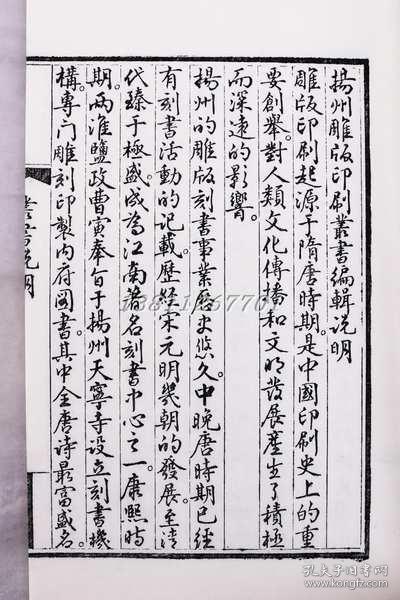 揚州雕版印刷叢書編輯説明
雕版印刷起源于隋唐時期。是中國印刷史上的重
要創舉。對人類文化傳播和文明發展産生了積極
而深遠的影響。
揚州的雕版刻書事業歷史悠久。中晚唐時期已經
有刻書活動的記載。歷經宋元明幾朝的發展。至清
代臻于極盛。成為江南著名刻書中心之一。康熙時
期。两淮鹽政曹寅奉旨于揚州天寧寺設立刻書機
構。專门雕刻印製内府圖書。其中全唐詩最富盛名。
孔夫子旧书网
www.kongfz.com